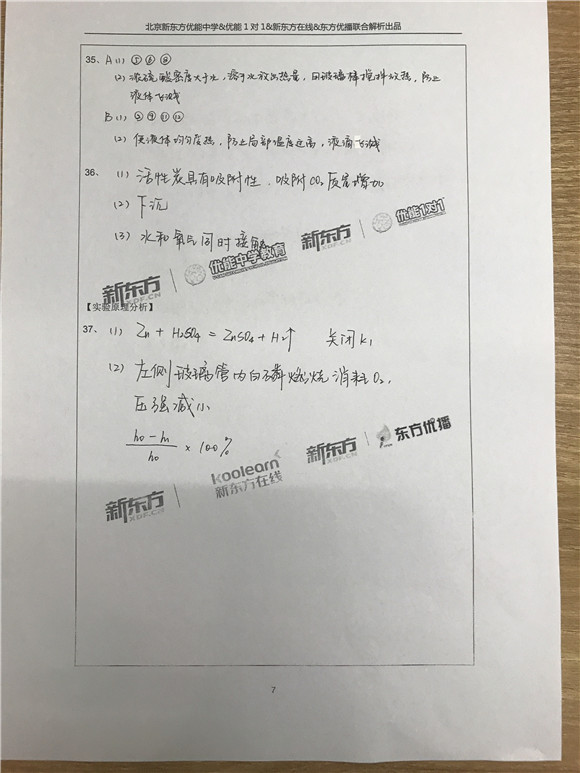 北京新东方优能中学&优能1对1&新东方在线&东方优播联合解析出品
35. A (1) ⑤⑥⑧
(2) 浓硫酸密度大于水，溶于水放出热量，用玻璃棒搅拌散热，防止
液体飞溅
B (1) ②⑨⑪⑫
(2) 使液体均匀受热，防止局部温度过高，液滴飞溅
36. (1) 活性炭具有吸附性、吸附CO₂质量增加
(2) 下沉
(3) 水和氧气同时接触
新东方 XDF.CN 优能中学教育 新东方 XDF.CN 优能1对1
【实验原理分析】
37. (1) Zn + H₂SO₄ = ZnSO₄ + H₂↑ 关闭K₁
(2) 左侧玻璃管内白磷燃烧消耗O₂，
压强减小
h₀-h₁/h₀ × 100%
新东方 XDF.CN koolearn 新东方在线 新东方 XDF.CN 东方优播
7